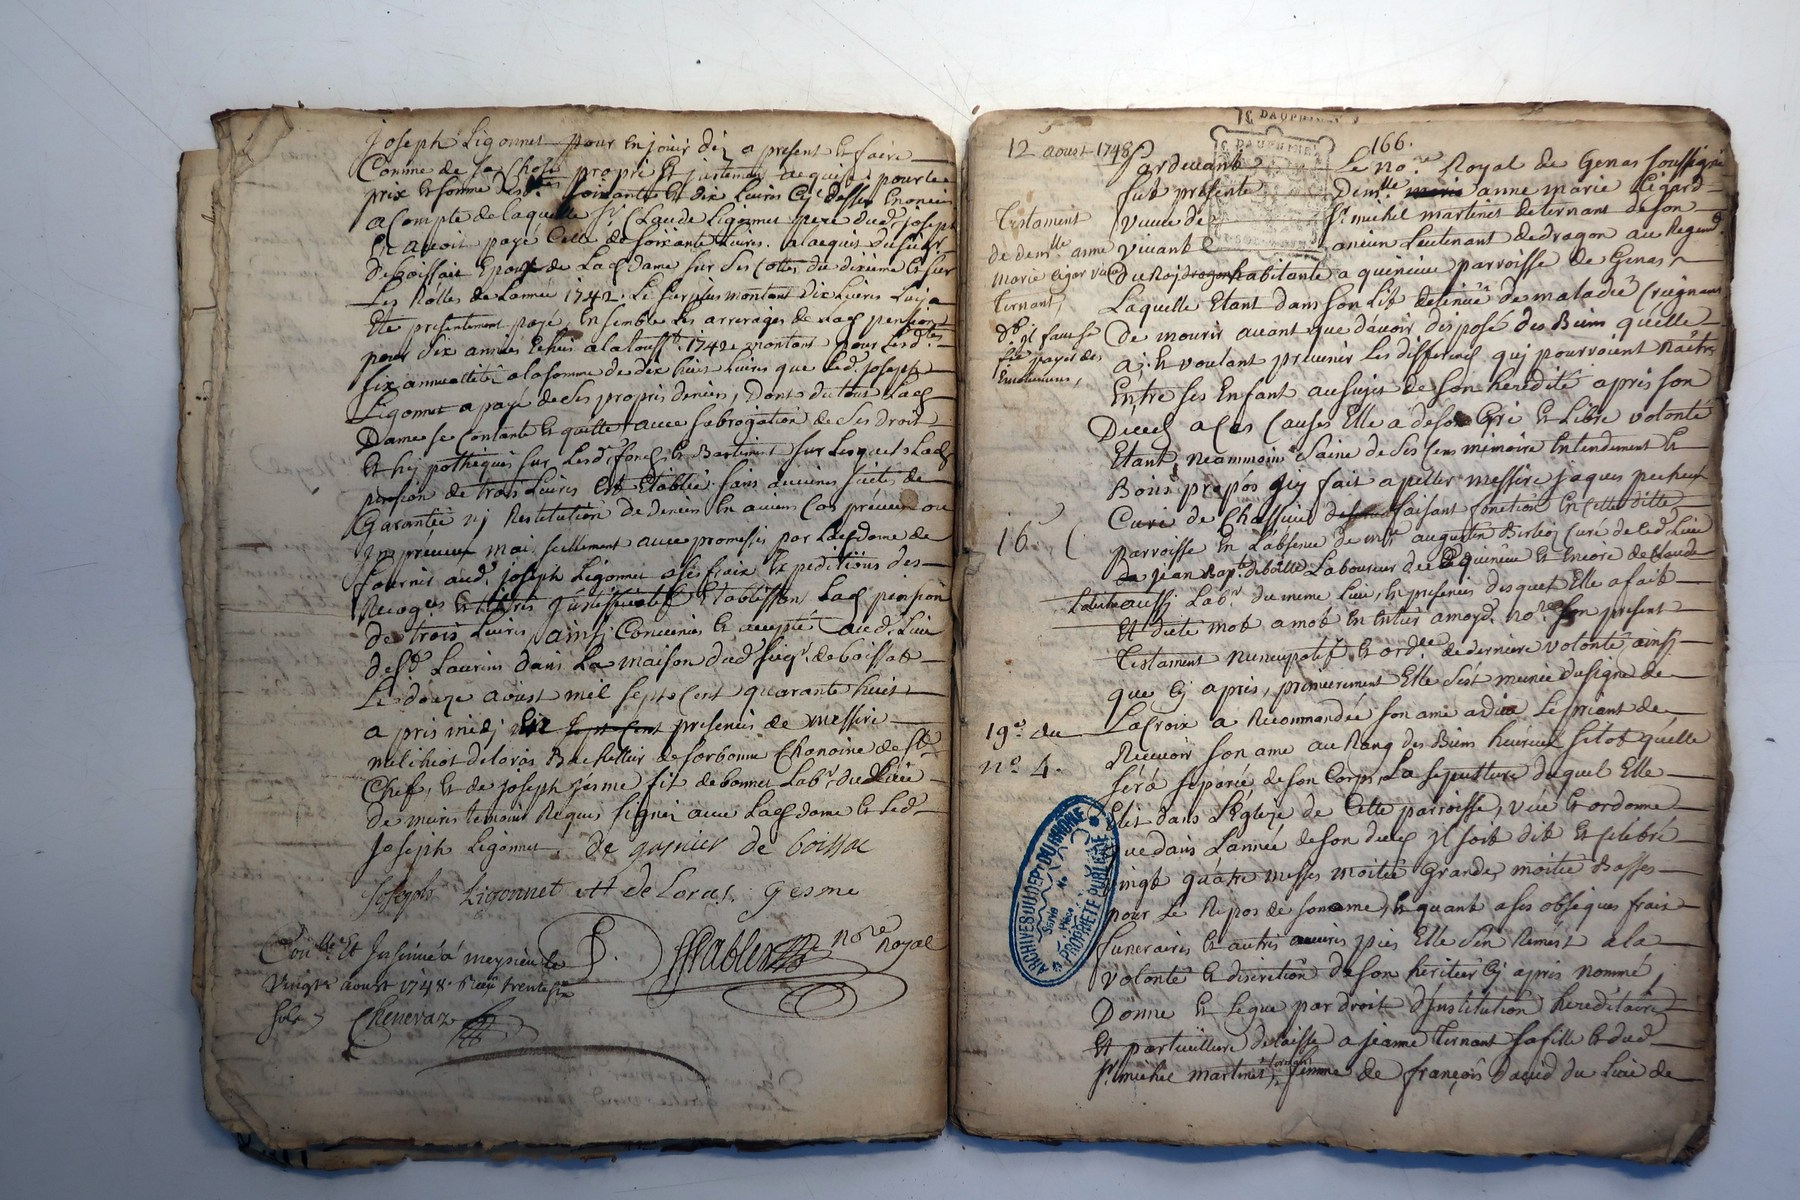 Joseph Ligonnet pour en jouir déz a present et faire
Comme de sa chose propre et justement acquise pour le
prix et somme de soixante et dix Livres cy dessus Enoncée
a Compte de laquelle Sr Claude Ligonnet pere dud. joseph
En avoit payé Celle de soixante Livres. a lacquis du sieur
de boissac Epoux de Lad. dame sur ses Cottes du dixieme et sur
Les Rolles de Lannée 1742. Le surplus montant dix Livres luy a
Eté presentement payé, Ensemble les arrerages de lad. pension
pour six années Echeus a la touss. 1742 montant pour lesd.
six annuallités a la somme de dix huit Livres que led. joseph
Ligonnet a payé de ses propres deniers, dont du tout Lad.
Dame se Contante et quitte avec subrogation de ses droits
et hypotheques sur lesd. fonds et Bastiment sur lesquels Lad.
pension de trois Livres Est Etablie sans aucunes suites de
Garantie ny Restitution de deniers En aucun Cas préveu ou
Impréveu mai seullement avec promesses par lad. dame de
fournir aud. joseph Ligonnet a ses fraix Expeditions des
Recog.es et titres justificatif Etablissant Lad. pension
de trois Livres, ainsi Convenus et accepté aud. Lieu
de St. Laurens dans La maison dud. seigr. de boissat
Le douze aoust mil sept Cent quarante huit
a pres midy presences de messire
melchiot deloras Bachellier de sorbonne Chanoine de St.
Chef, et de joseph jesme fils de bonnet Labr. dud. Lieu
de mures temoins Requis signés avec Lad. dame et led.
Joseph Ligonnet, de garnier de boissac
Joseph Ligonnet de Loras. Gesme
Pablen Nore Royal
Con.lle Et Insinué á meyzieu le
vingt aoust 1748. Receu trente
sols Chenevaz
166.
12 aoust 1748
Pardevant Le no.re Royal de Genas soussigné
fut presente Dem.lle anne marie Ligard
veuve de Sr. michel martinet de ternant de son
vivant ancien Lieutenant de dragon au Regimt.
du Roy habitante a quincieu parroisse de Genas,
Testament
de dem.lle anne
Marie Ligar veuve
Ternant,
d. il faut se
fre payer des
Emolumens,
Laquelle Etant dans son Lit detenüe de maladie Craignant
De mourir avant que d'avoir disposé des Biens quelle
a; Et voulant prevenir Les differens quj pourroient Naitre
Entre ses Enfant au sujet de son heredité apres son
Deces a Ces Causes Elle a de son Gré et Libre volonté
Etant Neammoins Saine de ses sens mémoire Entendement et
Bons propos fait apeller messire jaques pecheur
Curé de Chassieu faisant fonction En Cette ditte
16.
parroisse En L'absence de mr. augustin Birlioz Curé de led. Lieu
jean Bapt. Laboureur de quincieu et Encore de Claude
aussi Labr. du meme Lieu, En presences desquels Elle a fait
Et dicté mot a mot En Entier a moyd. no.re son present
Testament Nuncupatif et ord.ce de derniere volonté ainsi
que cy apres, premierement Elle s'est munie du signe de
19e. du
no. 4.
La Croix a Recommandée son ame a dieu Le priant de
Recevoir son ame au Rang des Biens heureux sitot quelle
séra séparée de son Corps, La sepulture duquel Elle
Elit dans L'Eglize de Cette parroisse, veut et ordonne
que dans Lannée de son deces Il soit dit et célébré
vingt quatre messes moitié Grandes moitié Basses
pour Le Repos de son ame, et quant a ses obseques frais
funeraires et autres œuvres pies Elle s'en Remest a la
volonté et discretion de son heritier Cy apres nommé,
Donne et Legue par droit d'institution hereditaire
Et particulliere delaisse a jeanne Ternant sa fille et dud.
Sr. michel martinet, femme de françois David du Lieu de
ARCHIVES DU DÉPT DU RHÔNE
PROPRIÉTÉ PUBLIQUE